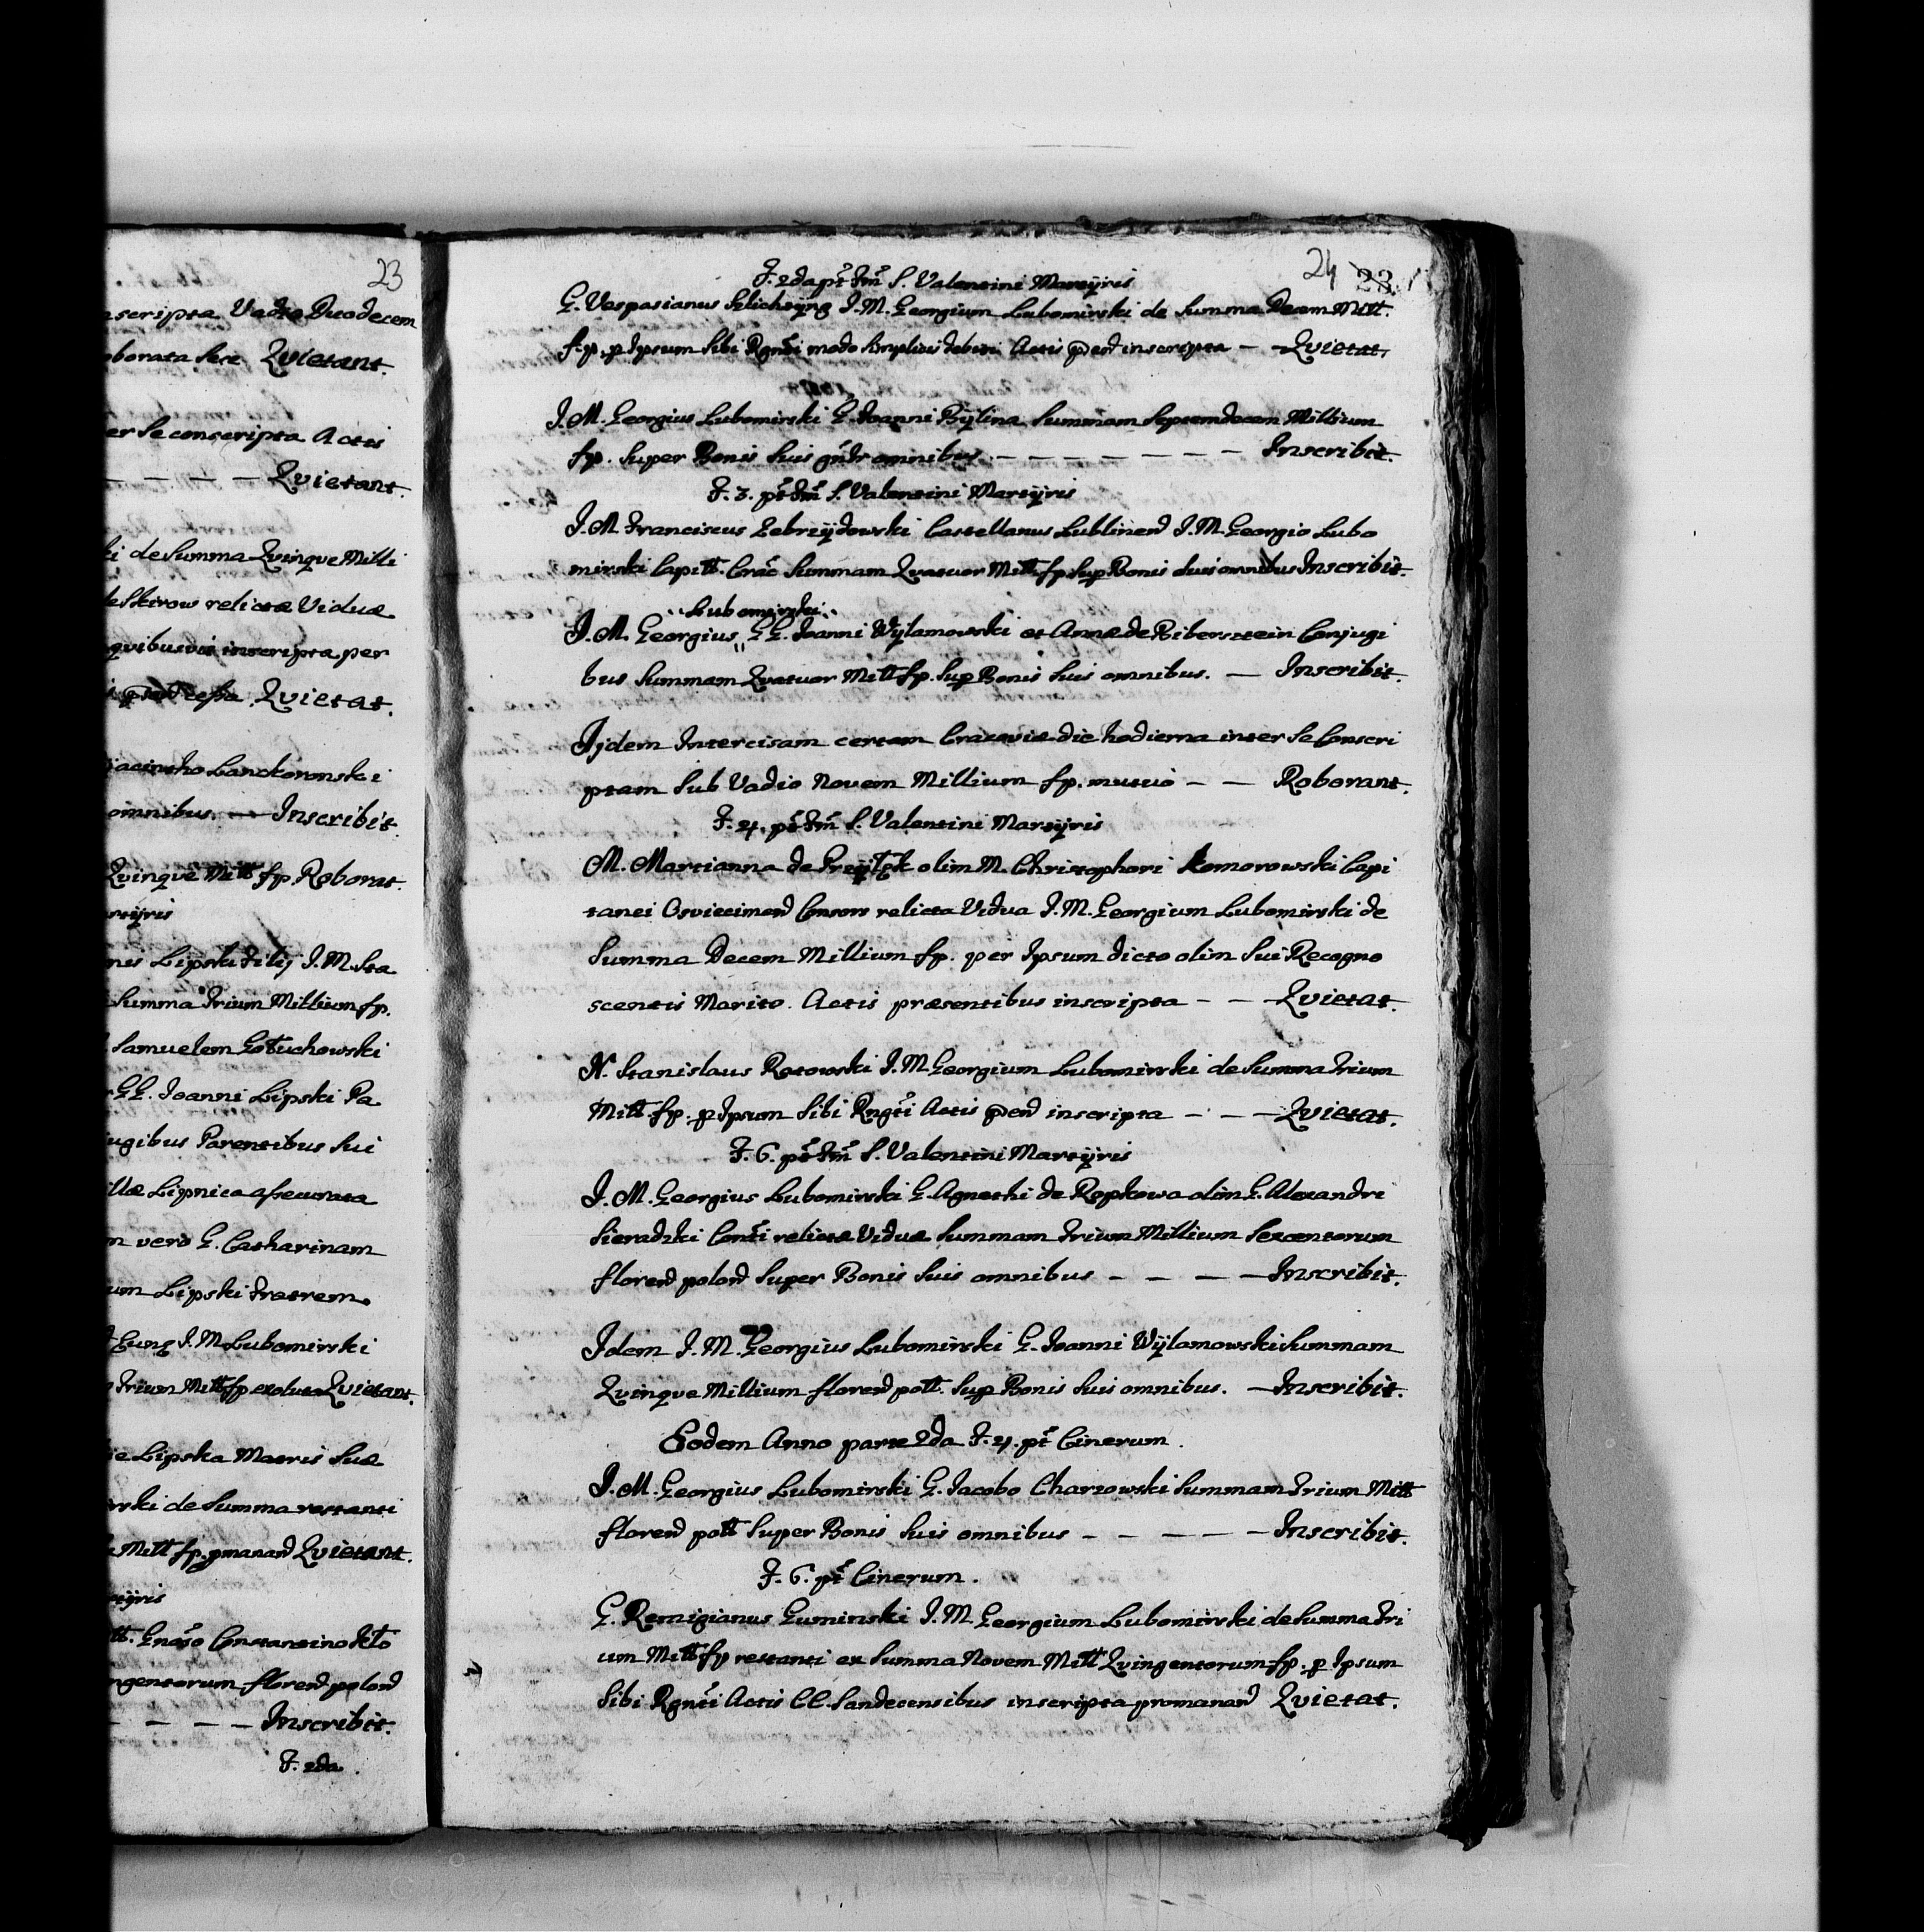 23
nscripta Vadio Duodecem
oborata Sese Qvietant.
er Se conscripta Actis
— — — — Qvietant.
ki de Summa Qvinqve Milli
de Skirow relictæ Viduæ
qvibusvis inscripta per
Qvietat.
Jacintho Lanckoronski
omnibus. — Inscribit.
Qvinqve Mill fp. Roborat.
rtyris
nis Lipski Filij J. M. Sta
Summa Trium Millium fp.
Samuelem Gołuchowski
GG. Joanni Lipski Pa
jugibus Parentibus Sui
illæ Lipnica assecurata
m vero G. Catharinam
um Lipski Fratrem
J. M. Lubomirski
Trium Mill fp exoluta Qvietant.
ie Lipska Matris Suæ
rski de Summa restanti
Mill fp. pmanand Qvietant.
rtyris
Constantino
ngentorum florend polond
— — — — Inscribit.
F. 2da.
24 23.
F. 2da pt Fm S. Valentini Martyris
G. Vespasianus Szlichtyng J. M. Georgium Lubomirski de Summa Decem Mill.
f. p. p Ipsum Sibi Rgnti modo simplicis debiti Actis pnd inscripta — Qvietat.
J. M. Georgius Lubomirski G. Joanni Bylina Summam Septemdecem Millium
fp. Super Bonis Suis gnlr omnibus. — — — — — — — Inscribit.
F. 3. pt Fm S. Valentini Martyris
J. M. Franciscus Zebrzydowski Castellanus Lublinend J. M. Georgio Lubo
mirski Capitt. Crac Summam Qvatuor Mill fp. Sup Bonis Suis omnibus Inscribit.
Lubomirski
J. M. Georgius GG. Joanni Wylamowski et Annæ de Biberstein Conjugi
bus Summam Qvatuor Mill fp. Sup Bonis Suis omnibus. — Inscribit.
Ijdem Intercisam certam Cracoviæ die hodierna inter Se Conscri
ptam Sub Vadio Novem Millium fp. mutuo — — Roborant.
F. 4. pt Fm S. Valentini Martyris
M. Marianna de Przyłęk olim M. Christophori Komorowski Capi
tanei Osviecimend Consors relicta Vidua J. M. Georgium Lubomirski de
Summa Decem Millium fp. per Ipsum dicto olim Sui Recogno
scentis Marito Actis præsentibus inscripta — — Qvietat.
N. Stanislaus Rotowski J. M. Georgium Lubomirski de Summa Trium
Mill. fp. p Ipsum Sibi Rngti Actis pend inscripta — — — Qvietat.
F. 6. pt Fm S. Valentini Martyris
J. M. Georgius Lubomirski G. Agnethi de Ropkowa olim G. Alexandri
Sieradzki Conti relictæ Viduæ Summam Trium Millium Sexcentorum
florend polond Super Bonis Suis omnibus — — — — Inscribit.
Idem J. M. Georgius Lubomirski G. Joanni Wylamowski Summam
Qvinqve Millium florend poll. Sup Bonis Suis omnibus. — Inscribit.
Eodem Anno parte 2da F. 4. pt Cinerum.
J. M. Georgius Lubomirski G. Jacobo Charzowski Summam Trium Mill
florend poll Super Bonis Suis omnibus — — — — — Inscribit.
F. 6. pt Cinerum.
G. Remigianus Guminski J. M. Georgium Lubomirski de Summa Tri
um Mill fp restanti ex Summa Novem Mill Qvingentorum fp. p Ipsum
Sibi Rgnti Actis CC. Sandecensibus inscripta promanand Qvietat.